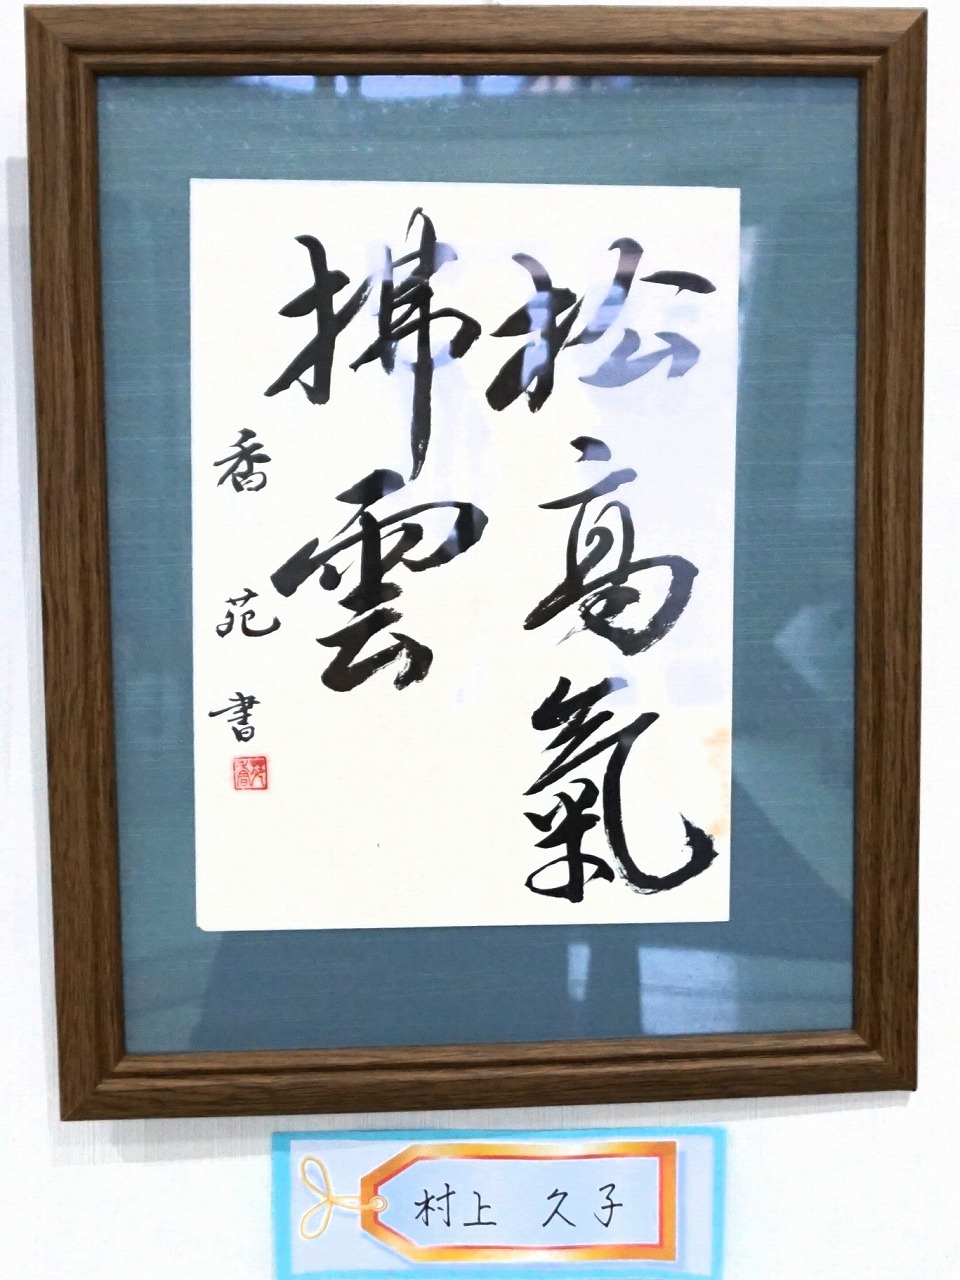 松高氣
拂雲
香苑書
村上 久子